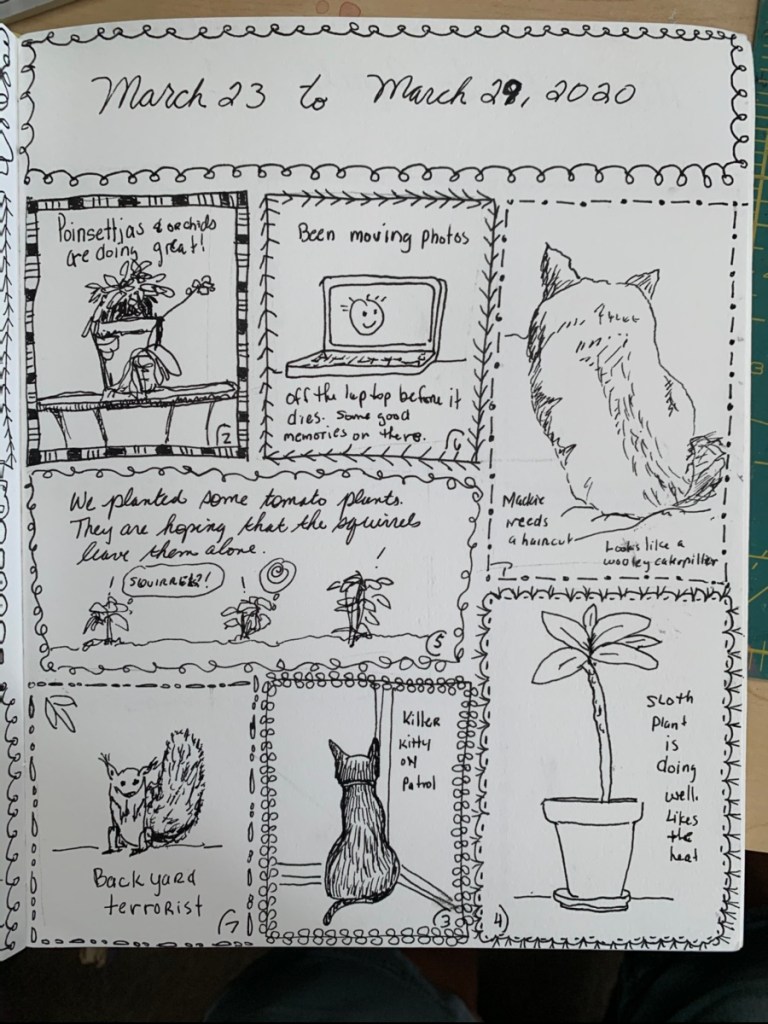 March 23 to March 29, 2020
Poinsettjas & orchids
are doing great!
2
Been moving photos
off the laptop before it
dies. Some good
memories on there.
6
Mackie
needs
a haircut
Looks like a
wooley caterpiller
1
We planted some tomato plants.
They are hoping that the squirrels
leave them alone.
! SQUIRREL?! ! !
5
Back yard
terrorist
7
Killer
Kitty
on
Patrol
3
Sloth
Plant
is
doing
well.
Likes
the
heat
4